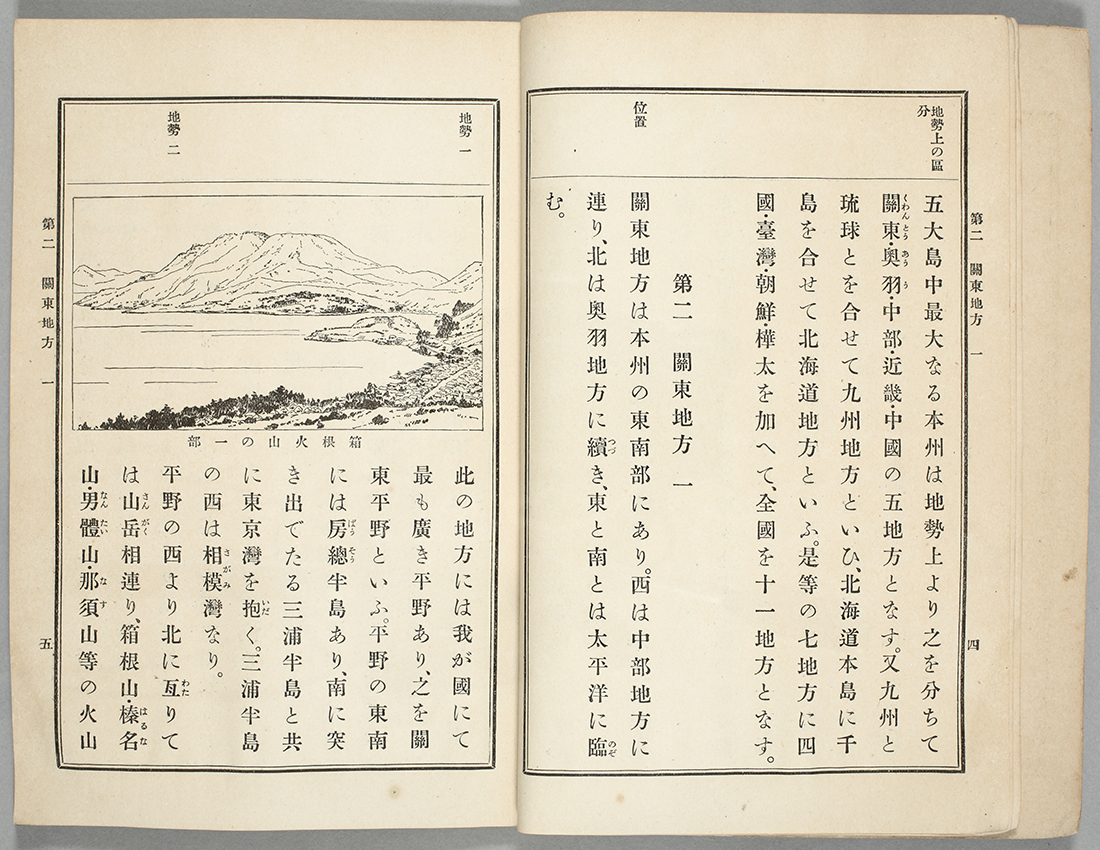 第二 關東地方 一
四
地勢上の區
分
五大島中最大なる本州は地勢上より之を分ちて
關東・奧羽・中部・近畿・中國の五地方となす。又九州と
くわんとう あう う
琉球とを合せて九州地方といひ、北海道本島に千
島を合せて北海道地方といふ。是等の七地方に四
國・臺灣・朝鮮・樺太を加へて、全國を十一地方となす。
第二 關東地方 一
位置
關東地方は本州の東南部にあり。西は中部地方に
連り、北は奧羽地方に續き、東と南とは太平洋に臨
つづ のぞ
む。
地勢 一
地勢 二
箱根火山の一部
此の地方には我が國にて
最も廣き平野あり、之を關
東平野といふ。平野の東南
には房總半島あり、南に突
ばうそう
き出でたる三浦半島と共
に東京灣を抱く。三浦半島
いだ
の西は相模灣なり。
さがみ
平野の西より北に亙りて
わた
は山岳相連り、箱根山・榛名
さんがく はるな
山・男體山・那須山等の火山
なんたい なす
第二 關東地方 一
五